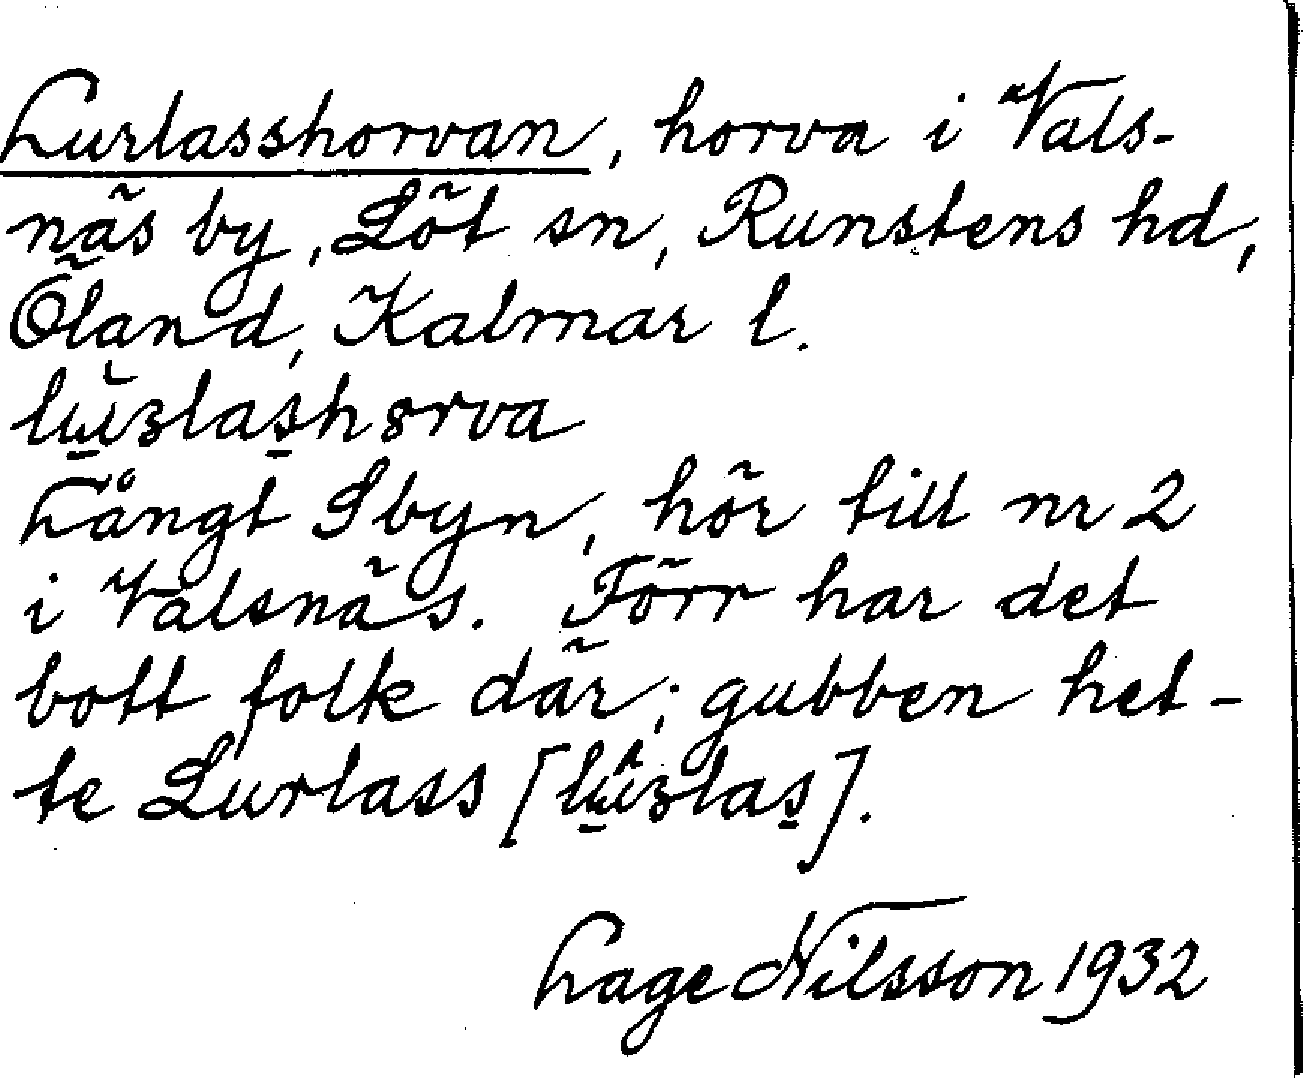 Lurlasshorvan, horva i Vals-
näs by, Löt sn, Runstens hd,
Öland, Kalmar l.
Långt S byn, hör till nr 2
i Valsnäs. Förr har det
bott folk där; gubben het-
te Lurlass
Lage Nilsson 1932